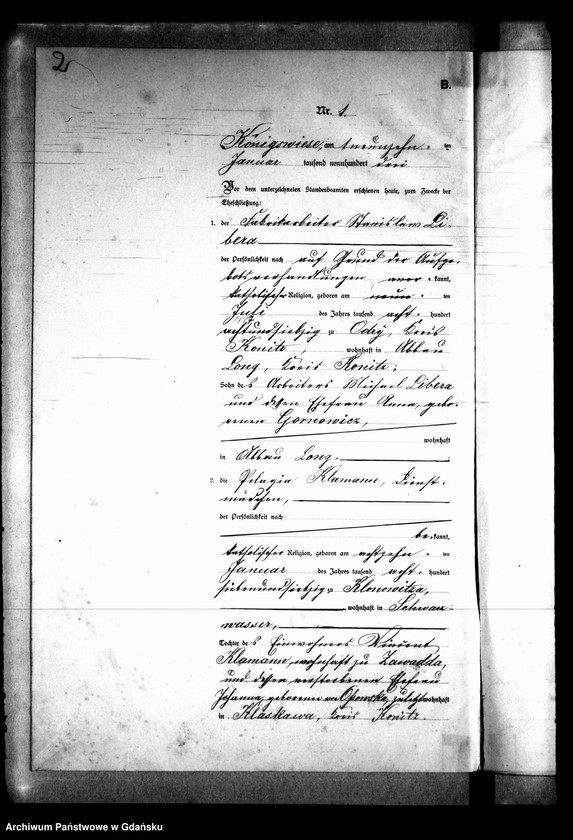 2
B.
Nr. 1.
Königswiese, am neunzehn ten
Januar tausend neunhundert drei
Vor dem unterzeichneten Standesbeamten erschienen heute, zum Zwecke der
Eheschließung:
1. der Fabrikarbeiter Stanislaw Li-
bera
der Persönlichkeit nach auf Grund der Aufge-
botsverhandlungen aner kannt,
katholischer Religion, geboren am neun ten
Juli des Jahres tausend acht hundert
achtundsiebzig zu Odry, Kreis
Konitz, wohnhaft in Abbau
Long, Kreis Konitz,
Sohn des Arbeiters Michael Libera
und dessen Ehefrau Anna, gebo-
renen Gornowicz,
wohnhaft
in Abbau Long.
2. die Pelagia Klamann, Dienst-
mädchen,
der Persönlichkeit nach
be kannt,
katholischer Religion, geboren am achtzehn ten
Januar des Jahres tausend acht hundert
siebenundsiebzig zu Klonowitza,
wohnhaft in Schwarz-
wasser,
Tochter des Einwohners Vincent
Klamann, wohnhaft zu Zawadda,
und dessen verstorbenen Ehefrau
Johanna, geborenen von Ostowska, zuletzt wohnhaft
in Klaskawa, Kreis Konitz.
Archiwum Państwowe w Gdańsku